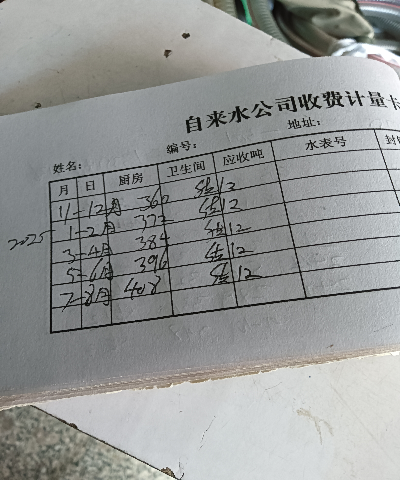 自来水公司收费计量卡
姓名: 编号: 地址:
月 日 厨房 卫生间 应收吨 水表号 封
11-12月 360 12
2025 1-2月 372 12
3-4月 384 12
5-6月 396 12
7-8月 408 12